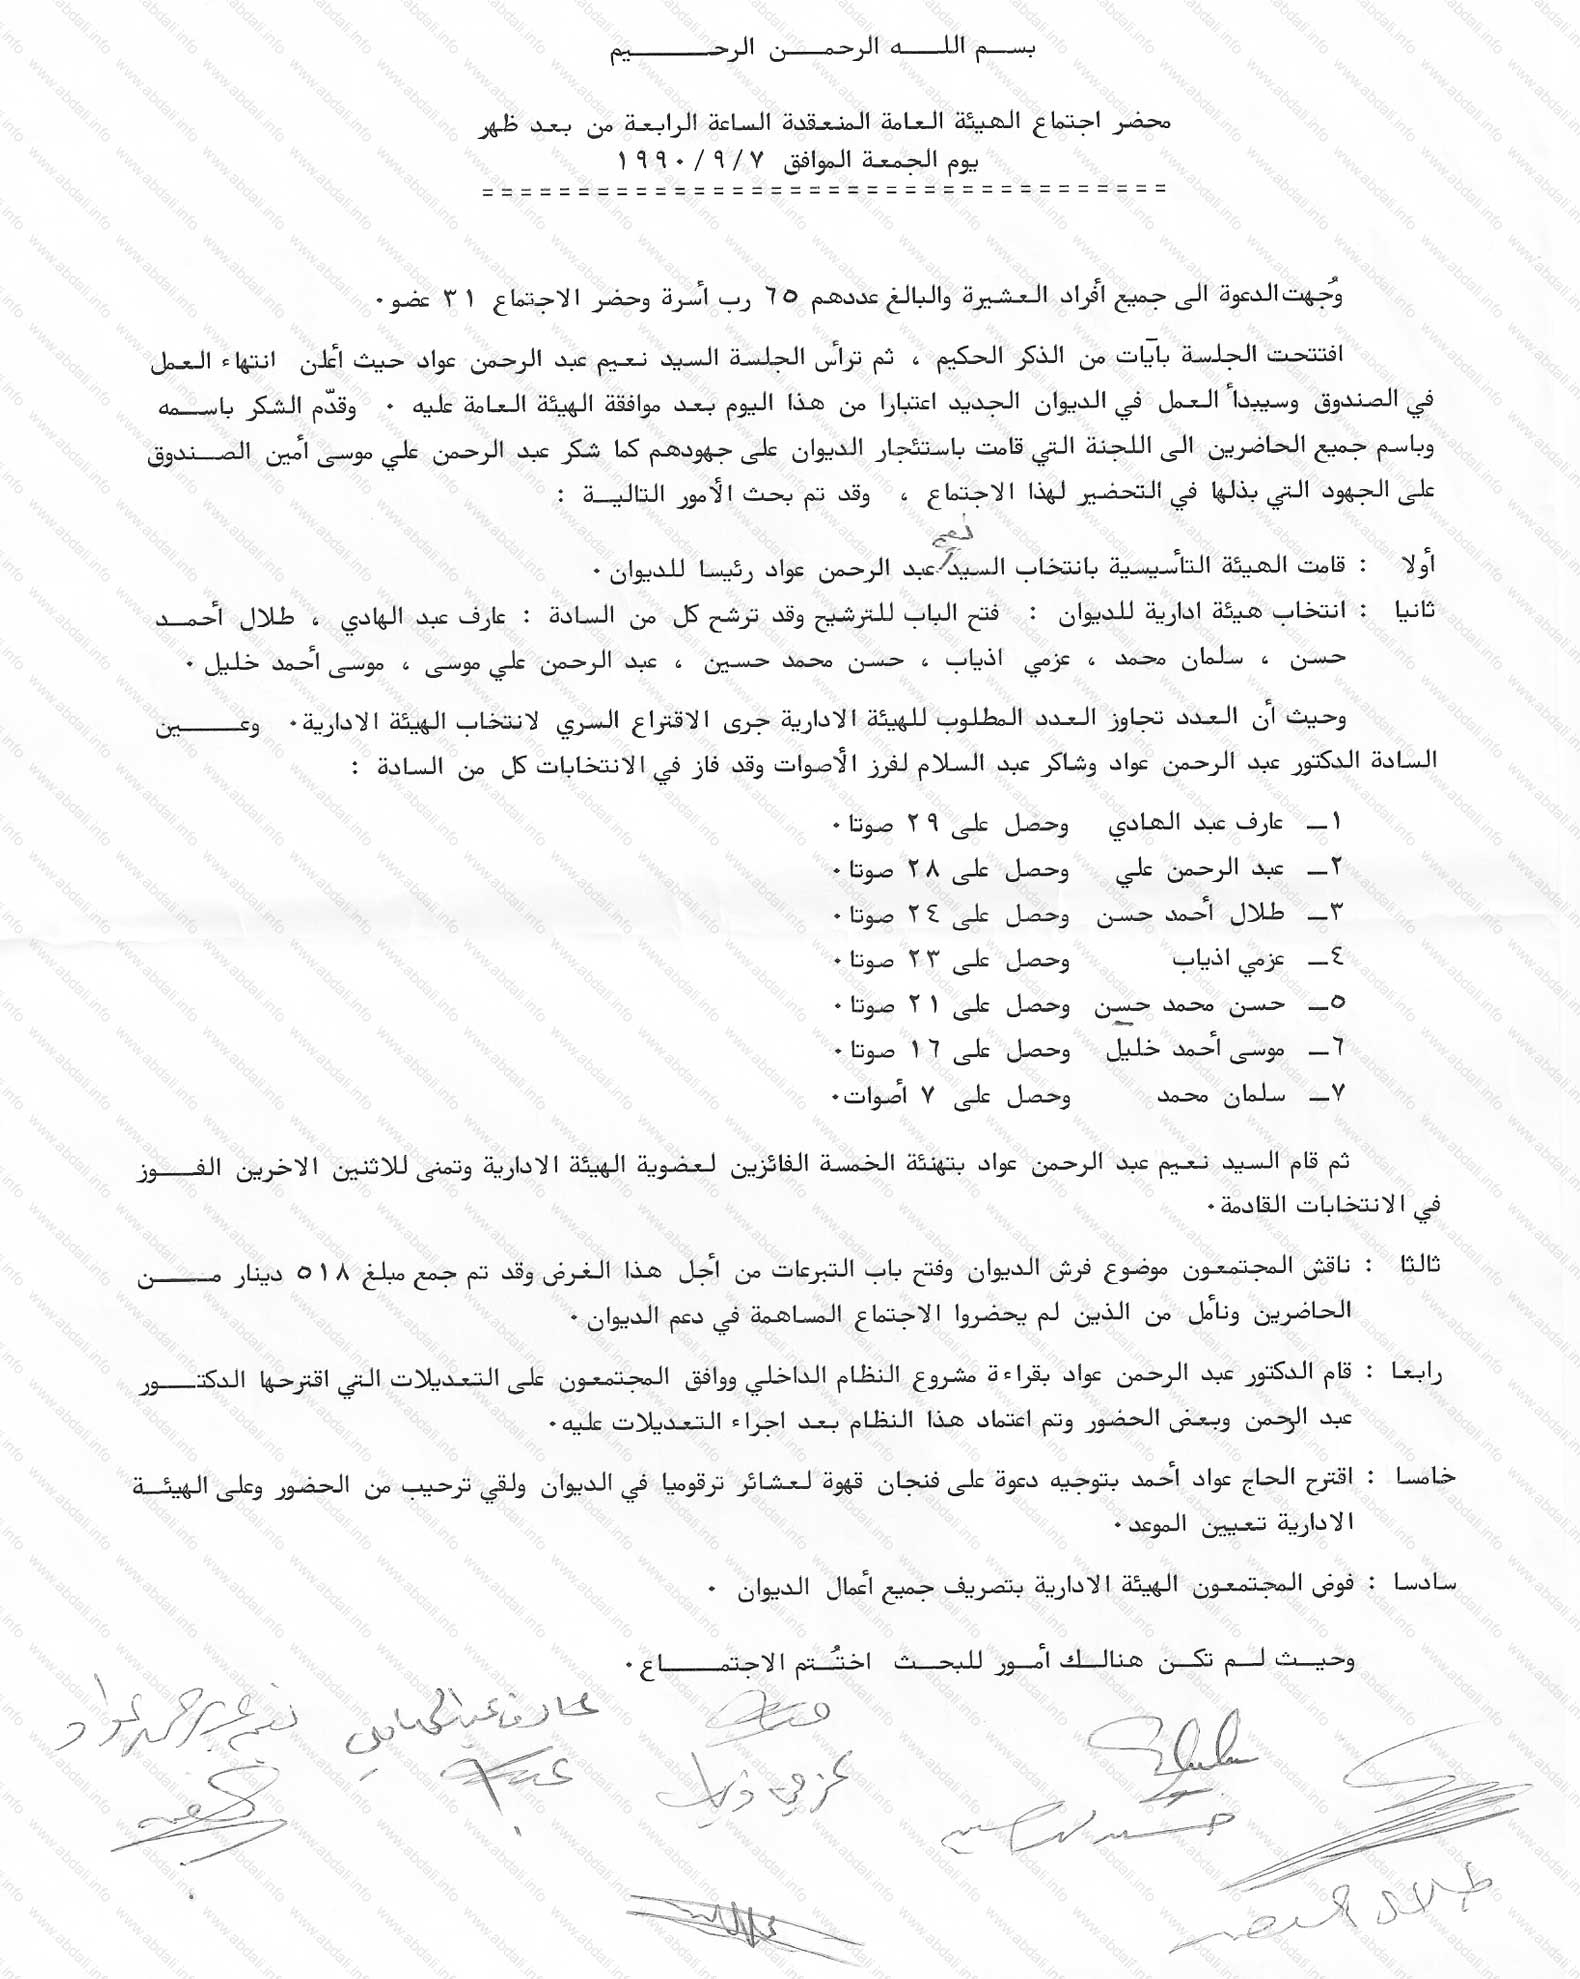 بسم الله الرحمن الرحيم
محضر اجتماع الهيئة العامة المنعقدة الساعة الرابعة من بعد ظهر
يوم الجمعة الموافق ١٩٩٠/٩/٧
====================================
وُجهت الدعوة الى جميع أفراد العشيرة والبالغ عددهم ٦٥ رب أسرة وحضر الاجتماع ٣١ عضو٠
افتتحت الجلسة بآيات من الذكر الحكيم ، ثم ترأس الجلسة السيد نعيم عبد الرحمن عواد حيث أعلن انتهاء العمل
في الصندوق وسيبدأ العمل في الديوان الجديد اعتبارا من هذا اليوم بعد موافقة الهيئة العامة عليه ٠ وقدّم الشكر باسمه
وباسم جميع الحاضرين الى اللجنة التي قامت باستئجار الديوان على جهودهم كما شكر عبد الرحمن علي موسى أمين الصندوق
على الجهود التي بذلها في التحضير لهذا الاجتماع ، وقد تم بحث الأمور التالية :
نعيم
أولا : قامت الهيئة التأسيسية بانتخاب السيد/عبد الرحمن عواد رئيسا للديوان ٠
ثانيا : انتخاب هيئة ادارية للديوان : فتح الباب للترشيح وقد ترشح كل من السادة : عارف عبد الهادي ، طلال أحمد
حسن ، سلمان محمد ، عزمي اذياب ، حسن محمد حسين ، عبد الرحمن علي موسى ، موسى أحمد خليل ٠
وحيث أن العدد تجاوز العدد المطلوب للهيئة الادارية جرى الاقتراع السري لانتخاب الهيئة الادارية٠ وعين
السادة الدكتور عبد الرحمن عواد وشاكر عبد السلام لفرز الأصوات وقد فاز في الانتخابات كل من السادة :
١ــ عارف عبد الهادي وحصل على ٢٩ صوتا٠
٢ــ عبد الرحمن علي وحصل على ٢٨ صوتا٠
٣ــ طلال أحمد حسن وحصل على ٢٤ صوتا٠
٤ــ عزمي اذياب وحصل على ٢٣ صوتا٠
٥ــ حسن محمد حسن وحصل على ٢١ صوتا٠
٦ــ موسى أحمد خليل وحصل على ١٦ صوتا٠
٧ــ سلمان محمد وحصل على ٧ أصوات٠
ثم قام السيد نعيم عبد الرحمن عواد بتهنئة الخمسة الفائزين لعضوية الهيئة الادارية وتمنى للاثنين الاخرين الفوز
في الانتخابات القادمة٠
ثالثا : ناقش المجتمعون موضوع فرش الديوان وفتح باب التبرعات من أجل هذا الغرض وقد تم جمع مبلغ ٥١٨ دينار من
الحاضرين ونأمل من الذين لم يحضروا الاجتماع المساهمة في دعم الديوان ٠
رابعا : قام الدكتور عبد الرحمن عواد بقراءة مشروع النظام الداخلي ووافق المجتمعون على التعديلات التي اقترحها الدكتور
عبد الرحمن وبعض الحضور وتم اعتماد هذا النظام بعد اجراء التعديلات عليه٠
خامسا : اقترح الحاج عواد أحمد بتوجيه دعوة على فنجان قهوة لعشائر ترقوميا في الديوان ولقي ترحيب من الحضور وعلى الهيئة
الادارية تعيين الموعد٠
سادسا : فوض المجتمعون الهيئة الادارية بتصريف جميع أعمال الديوان ٠
وحيث لم تكن هنالك أمور للبحث اختُتم الاجتماع٠
عارف عبد الهادي نعيم عبد الرحمن عواد
عزمي ذياب
طلال احمد حسن
www.abdali.info